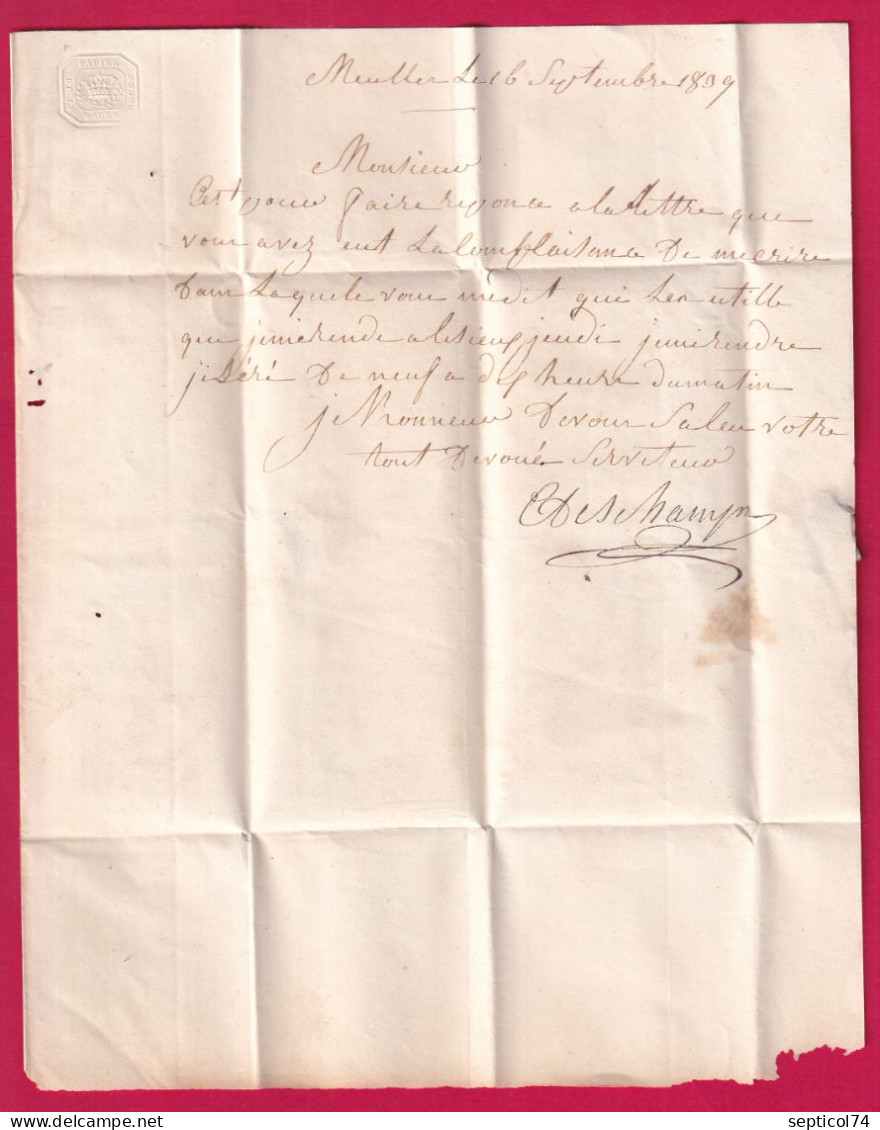 Meulles Le 16 Septembre 1839
Monsieur
Cest pour faire reponce a la lettre que
vous avez eut La Complaisance De mecrire
Dans Laquele vous me dit quil Les utille
que jemerende a Lisieux jeudi jemerendre
je Seré De neuf a dix heure du matin
je Monsieur De vous Saleu votre
tout Devoué Serviteur
Deschamps
septicol74